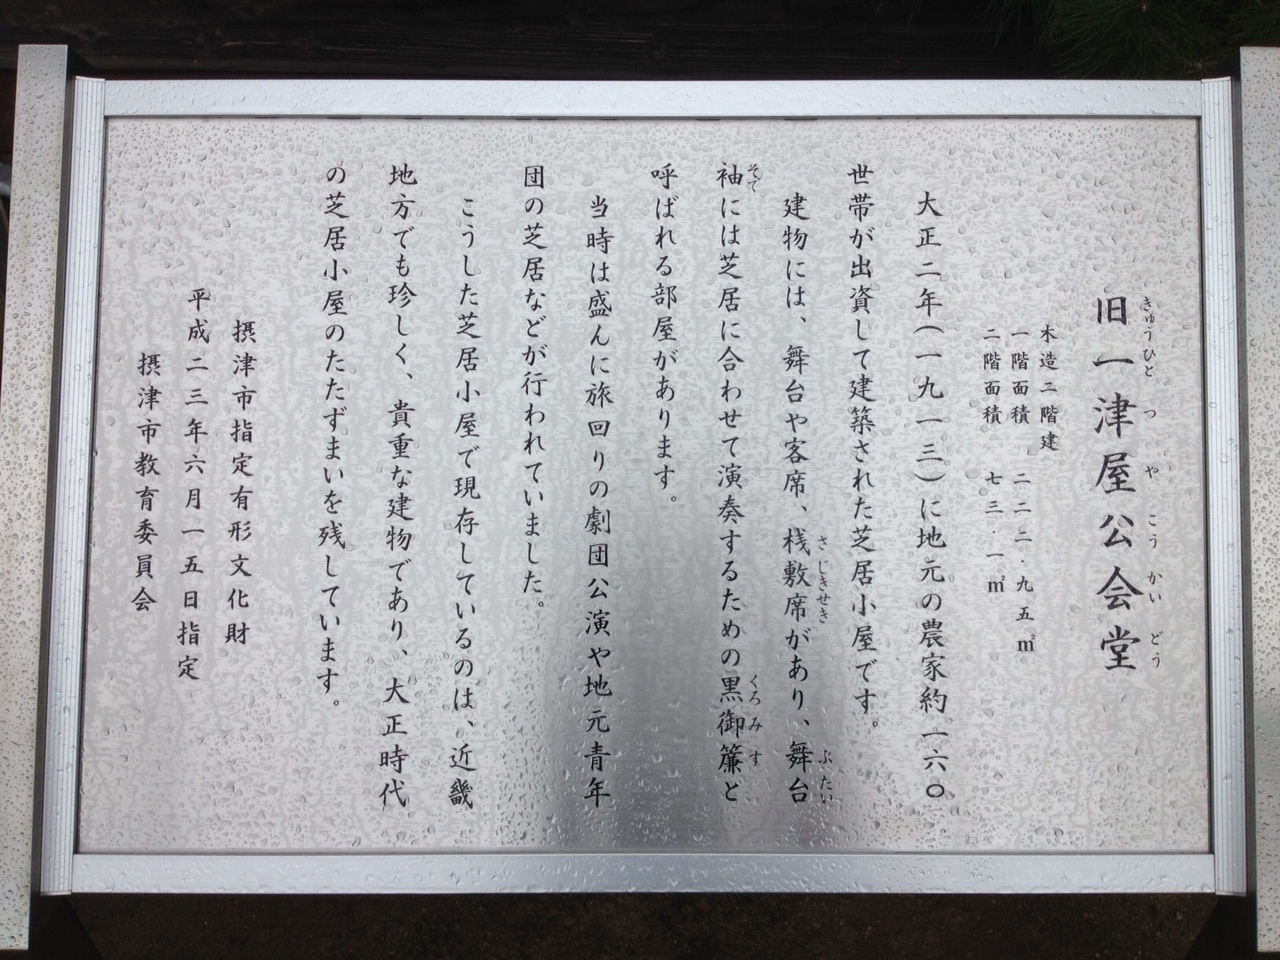 旧一津屋公会堂
きゅうひとつやこうかいどう
木造二階建
一階面積 二二二・九五㎡
二階面積 七三・一㎡
大正二年(一九一三)に地元の農家約一六〇
世帯が出資して建築された芝居小屋です。
建物には、舞台や客席、桟敷席があり、舞台
さじきせき ぶたい
袖には芝居に合わせて演奏するための黒御簾と
そで くろみす
呼ばれる部屋があります。
当時は盛んに旅回りの劇団公演や地元青年
団の芝居などが行われていました。
こうした芝居小屋で現存しているのは、近畿
地方でも珍しく、貴重な建物であり、大正時代
の芝居小屋のたたずまいを残しています。
摂津市指定有形文化財
平成二三年六月一五日指定
摂津市教育委員会